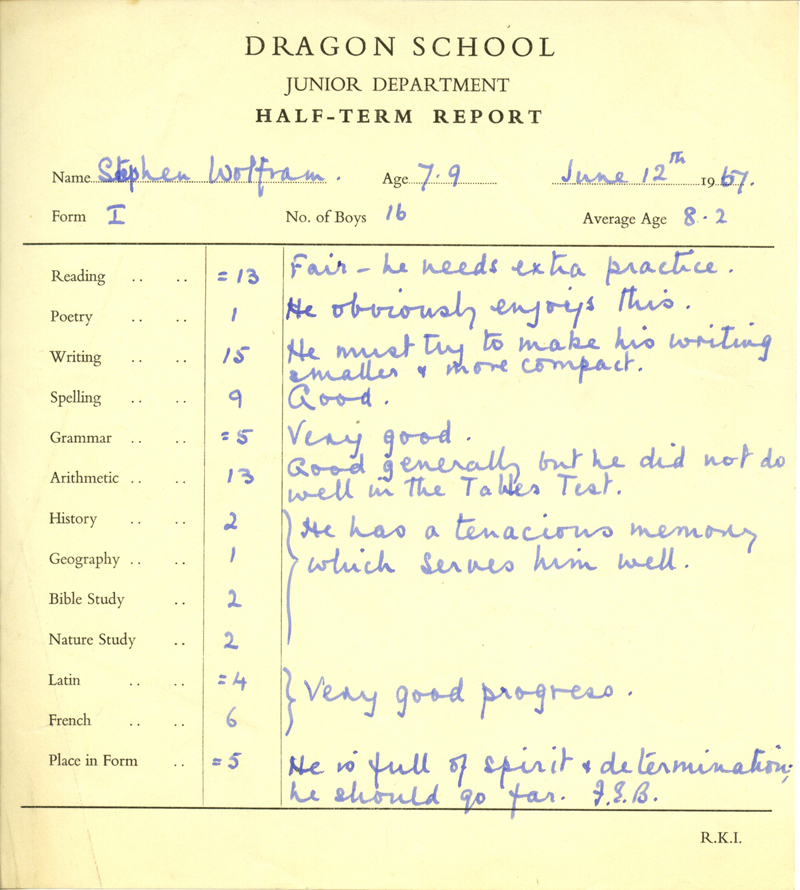 DRAGON SCHOOL
JUNIOR DEPARTMENT
HALF-TERM REPORT
Name Stephen Wolfram. Age 7.9 June 12th 1967.
Form I No. of Boys 16 Average Age 8.2
Reading .. .. =13 Fair – he needs extra practice.
Poetry .. .. 1 He obviously enjoys this.
Writing .. .. 15 He must try to make his writing
smaller & more compact.
Spelling .. .. 9 Good.
Grammar .. .. =5 Very good.
Arithmetic .. .. 13 Good generally but he did not do
well in the Tables Test.
History .. .. 2 He has a tenacious memory
Geography .. .. 1 which serves him well.
Bible Study .. 2
Nature Study .. 2
Latin .. .. =4 Very good progress.
French .. .. 6
Place in Form .. =5 He is full of spirit & determination;
he should go far. F.E.B.
R.K.I.